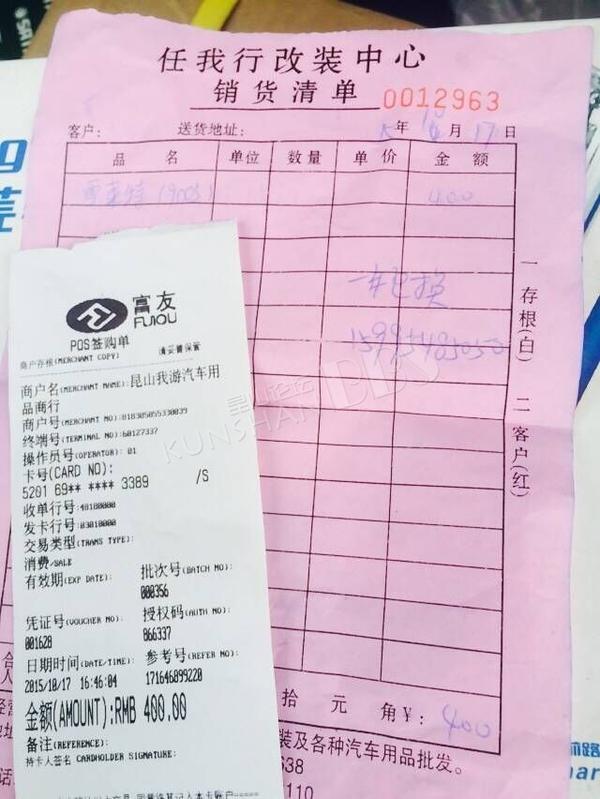 任我行改装中心
销货清单 0012963
客户: 送货地址: 年 10月17日
品 名 单位 数量 单价 金额
400
一年包换
一 存根(白) 二 客户(红)
富友
FUIOU
POS签购单
商户存根(MERCHANT COPY) 请妥善保管
商户名(MERCHANT NAME):昆山我游汽车用
品商行
商户号(MERCHANT NO):818305055330039
终端号(TERMINAL NO):60127337
操作员号(OPERATOR): 01
卡号(CARD NO):
5201 69** **** 3389 /S
收单行号:48180000
发卡行号:03010000
交易类型(TRANS TYPE):
消费/SALE
有效期(EXP DATE): 批次号(BATCH NO):
000356
凭证号(VOUCHER NO): 授权码(AUTH NO):
001628 866337
日期时间(DATE/TIME): 参考号(REFER NO):
2015/10/17 16:46:04 171646899220
金额(AMOUNT):RMB 400.00
备注(REFERENCE):
持卡人签名 CARDHOLDER SIGNATURE:
拾 元 角 ¥: 400
装及各种汽车用品批发。
638
110
KUNSHAN BBS